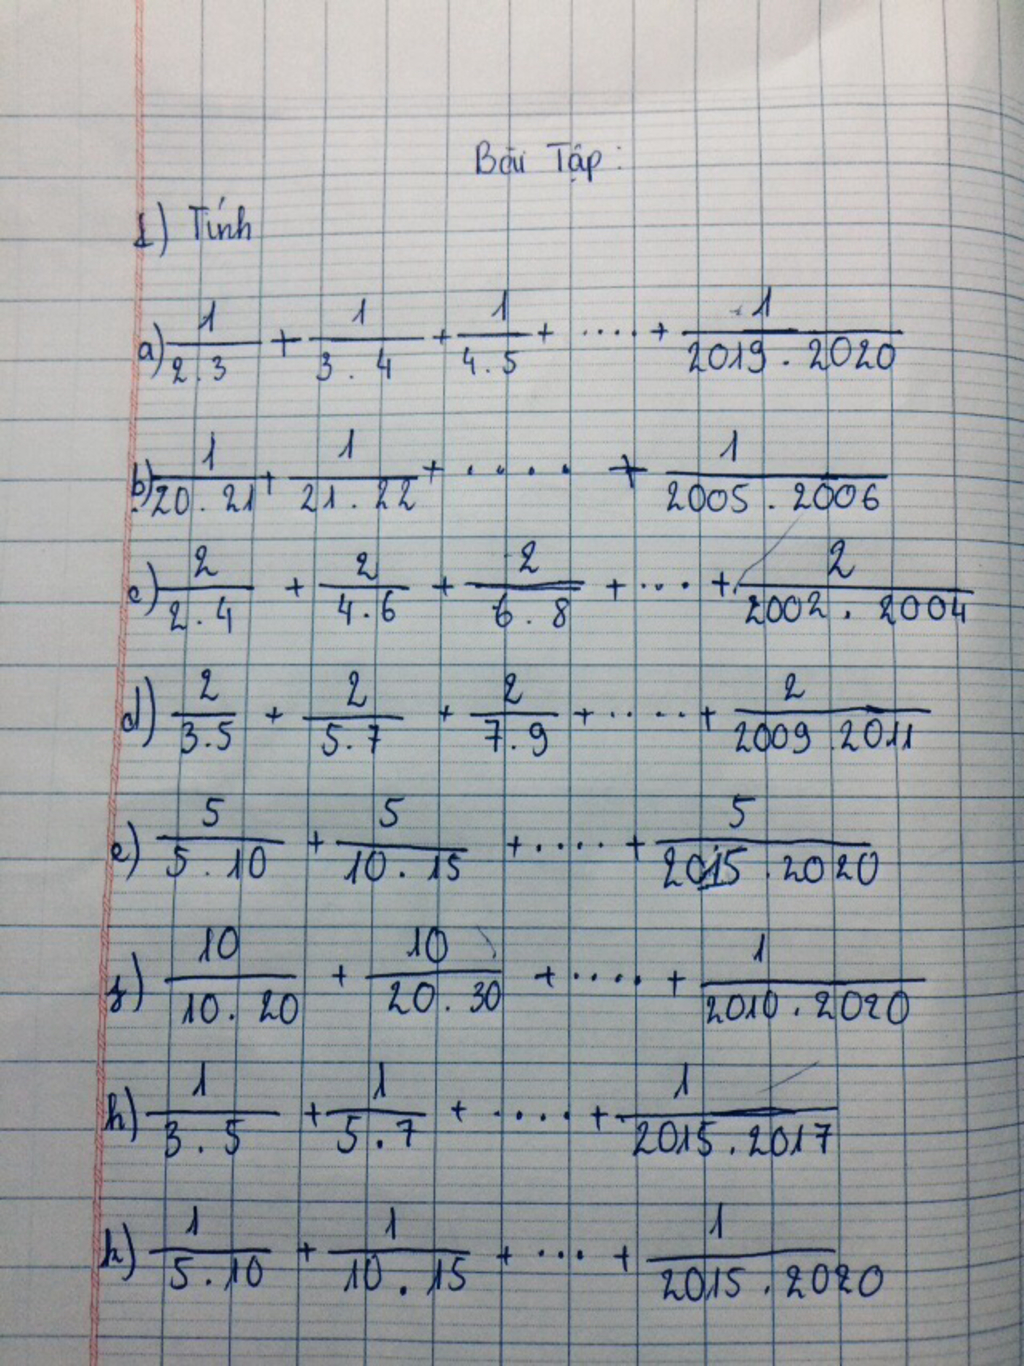 Bài Tập:
1) Tính
a) 1/2.3 + 1/3.4 + 1/4.5 + .... + 1/2019.2020
b) 1/20.21 + 1/21.22 + .... + 1/2005.2006
c) 2/2.4 + 2/4.6 + 2/6.8 + ... + 2/2002.2004
d) 2/3.5 + 2/5.7 + 2/7.9 + .... + 2/2009.2011
e) 5/5.10 + 5/10.15 + .... + 5/2015.2020
f) 10/10.20 + 10/20.30 + .... + 1/2010.2020
h) 1/3.5 + 1/5.7 + .... + 1/2015.2017
k) 1/5.10 + 1/10.15 + ... + 1/2015.2020